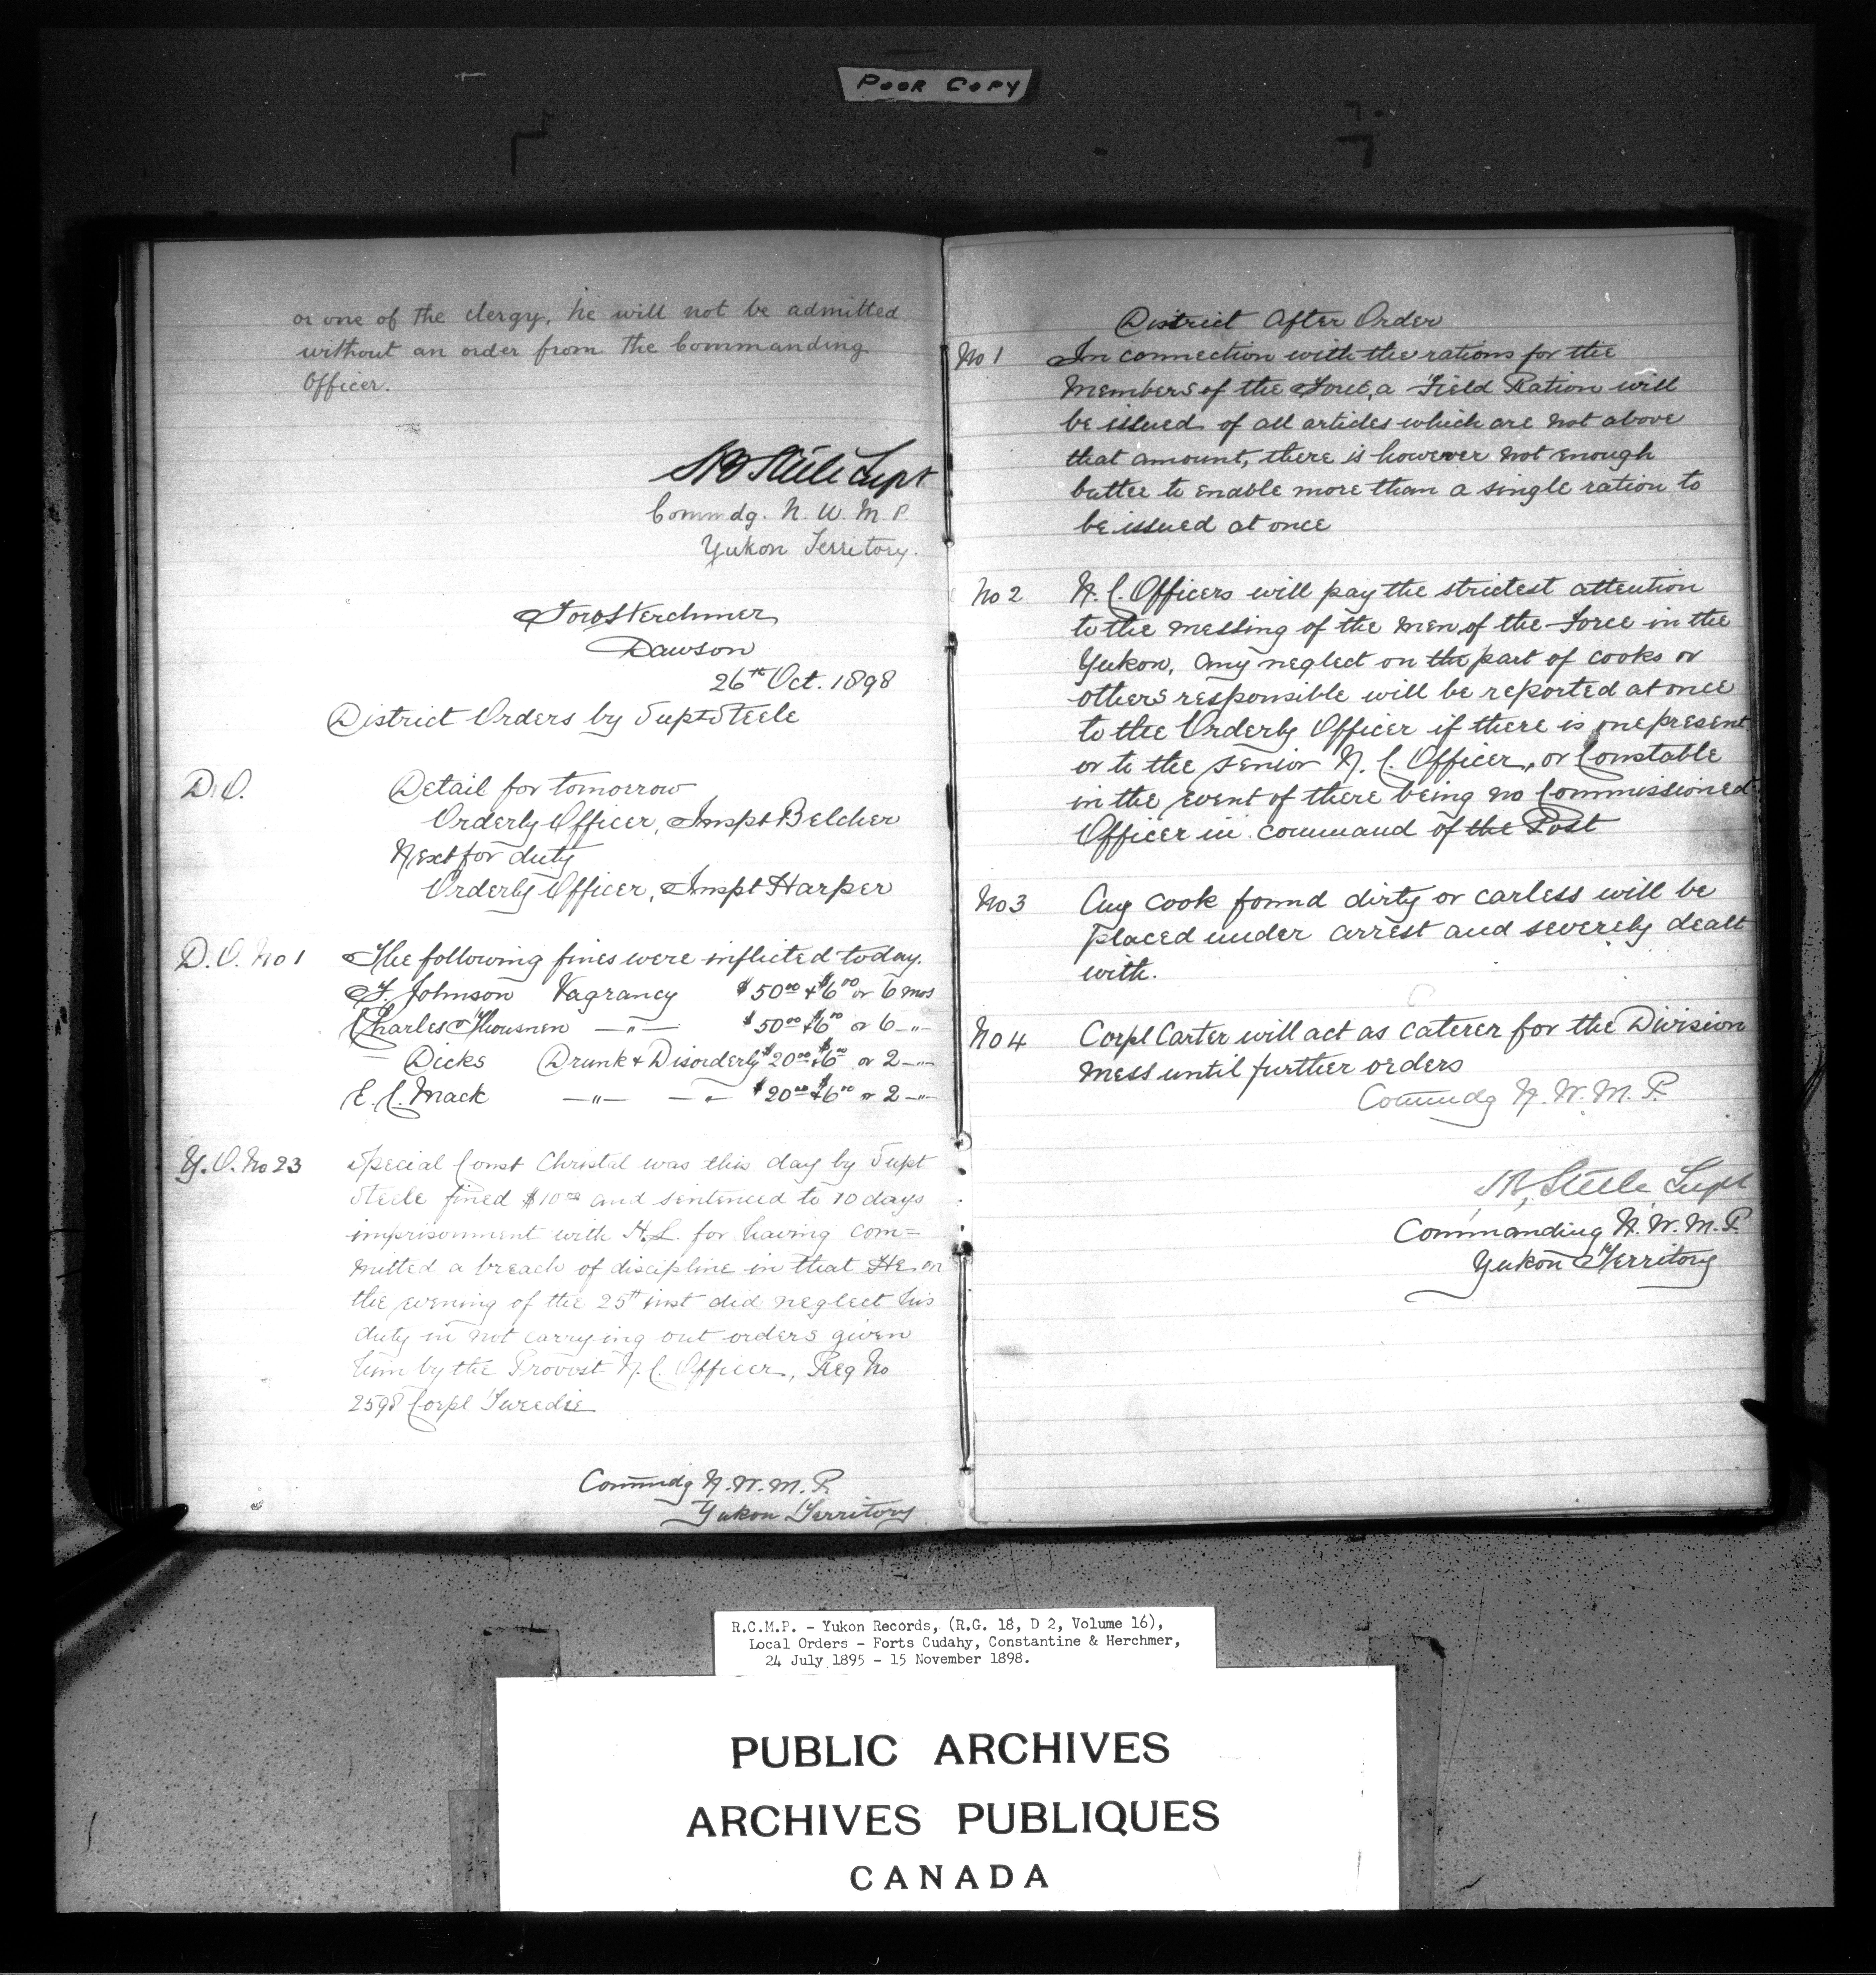 POOR COPY
or one of the clergy, he will not be admitted
without an order from the Commanding
Officer.
SB Steele Supt
Commdg. N. W. M. P.
Yukon Territory.
Fort Herchmer
Dawson
26th Oct. 1898
District Orders by Supt Steele
D.O. Detail for tomorrow
Orderly Officer, Inspt Belcher
Next for duty
Orderly Officer, Inspt Harper
D.O. No 1 The following fines were inflicted today.
F. Johnson Vagrancy $50.00 + $6.00 or 6 mos
Charles —"— $50.00 + $6.00 or 6 —"—
— Dicks Drunk & Disorderly $20.00 + $6.00 or 2 —"—
E. C. Mack —"— —"— $20.00 + $6.00 or 2 —"—
Y.O. No 23 Special Const Christal was this day by Supt
Steele fined $10.00 and sentenced to 10 days
imprisonment with H.L. for having com=
mitted a breach of discipline in that He on
the evening of the 25th inst did neglect his
duty in not carrying out orders given
him by the Provost N.C. Officer, Reg No
2598 Corpl Tweedie
Commdg N.W.M.P.
Yukon Territory
District After Order
No 1 In connection with the rations for the
Members of the Force, a Field Ration will
be issued of all articles which are not above
that amount, there is however not enough
butter to enable more than a single ration to
be issued at once
No 2 N.C. Officers will pay the strictest attention
to the messing of the men of the Force in the
Yukon, any neglect on the part of cooks or
others responsible will be reported at once
to the Orderly Officer if there is one present
or to the senior N.C. Officer, or Constable
in the event of there being no Commissioned
Officer in command of the Post
No 3 Any cook found dirty or carless will be
placed under arrest and severely dealt
with.
No 4 Corpl Carter will act as caterer for the Division
mess until further orders
Commdg N.W.M.P.
SB Steele Supt
Commanding N.W.M.P.
Yukon Territory
R.C.M.P. - Yukon Records, (R.G. 18, D 2, Volume 16),
Local Orders - Forts Cudahy, Constantine & Herchmer,
24 July 1895 - 15 November 1898.
PUBLIC ARCHIVES
ARCHIVES PUBLIQUES
CANADA